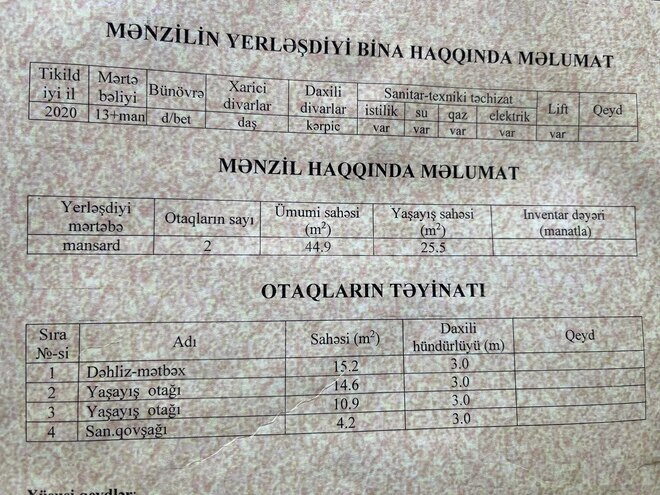 MƏNZİLİN YERLƏŞDİYİ BİNA HAQQINDA MƏLUMAT
Tikild Mərtə Bünövrə Xarici Daxili Sanitar-texniki təchizat Lift Qeyd
iyi il bəliyi divarlar divarlar istilik su qaz elektrik
2020 13+man d/bet daş kərpic var var var var var
MƏNZİL HAQQINDA MƏLUMAT
Yerləşdiyi Otaqların sayı Ümumi sahəsi Yaşayış sahəsi Inventar dəyəri
mərtəbə (m²) (m²) (manatla)
mansard 2 44.9 25.5
OTAQLARIN TƏYİNATI
Sıra Adı Sahəsi (m²) Daxili Qeyd
№-si hündürlüyü (m)
1 Dəhliz-mətbəx 15.2 3.0
2 Yaşayış otağı 14.6 3.0
3 Yaşayış otağı 10.9 3.0
4 San.qovşağı 4.2 3.0